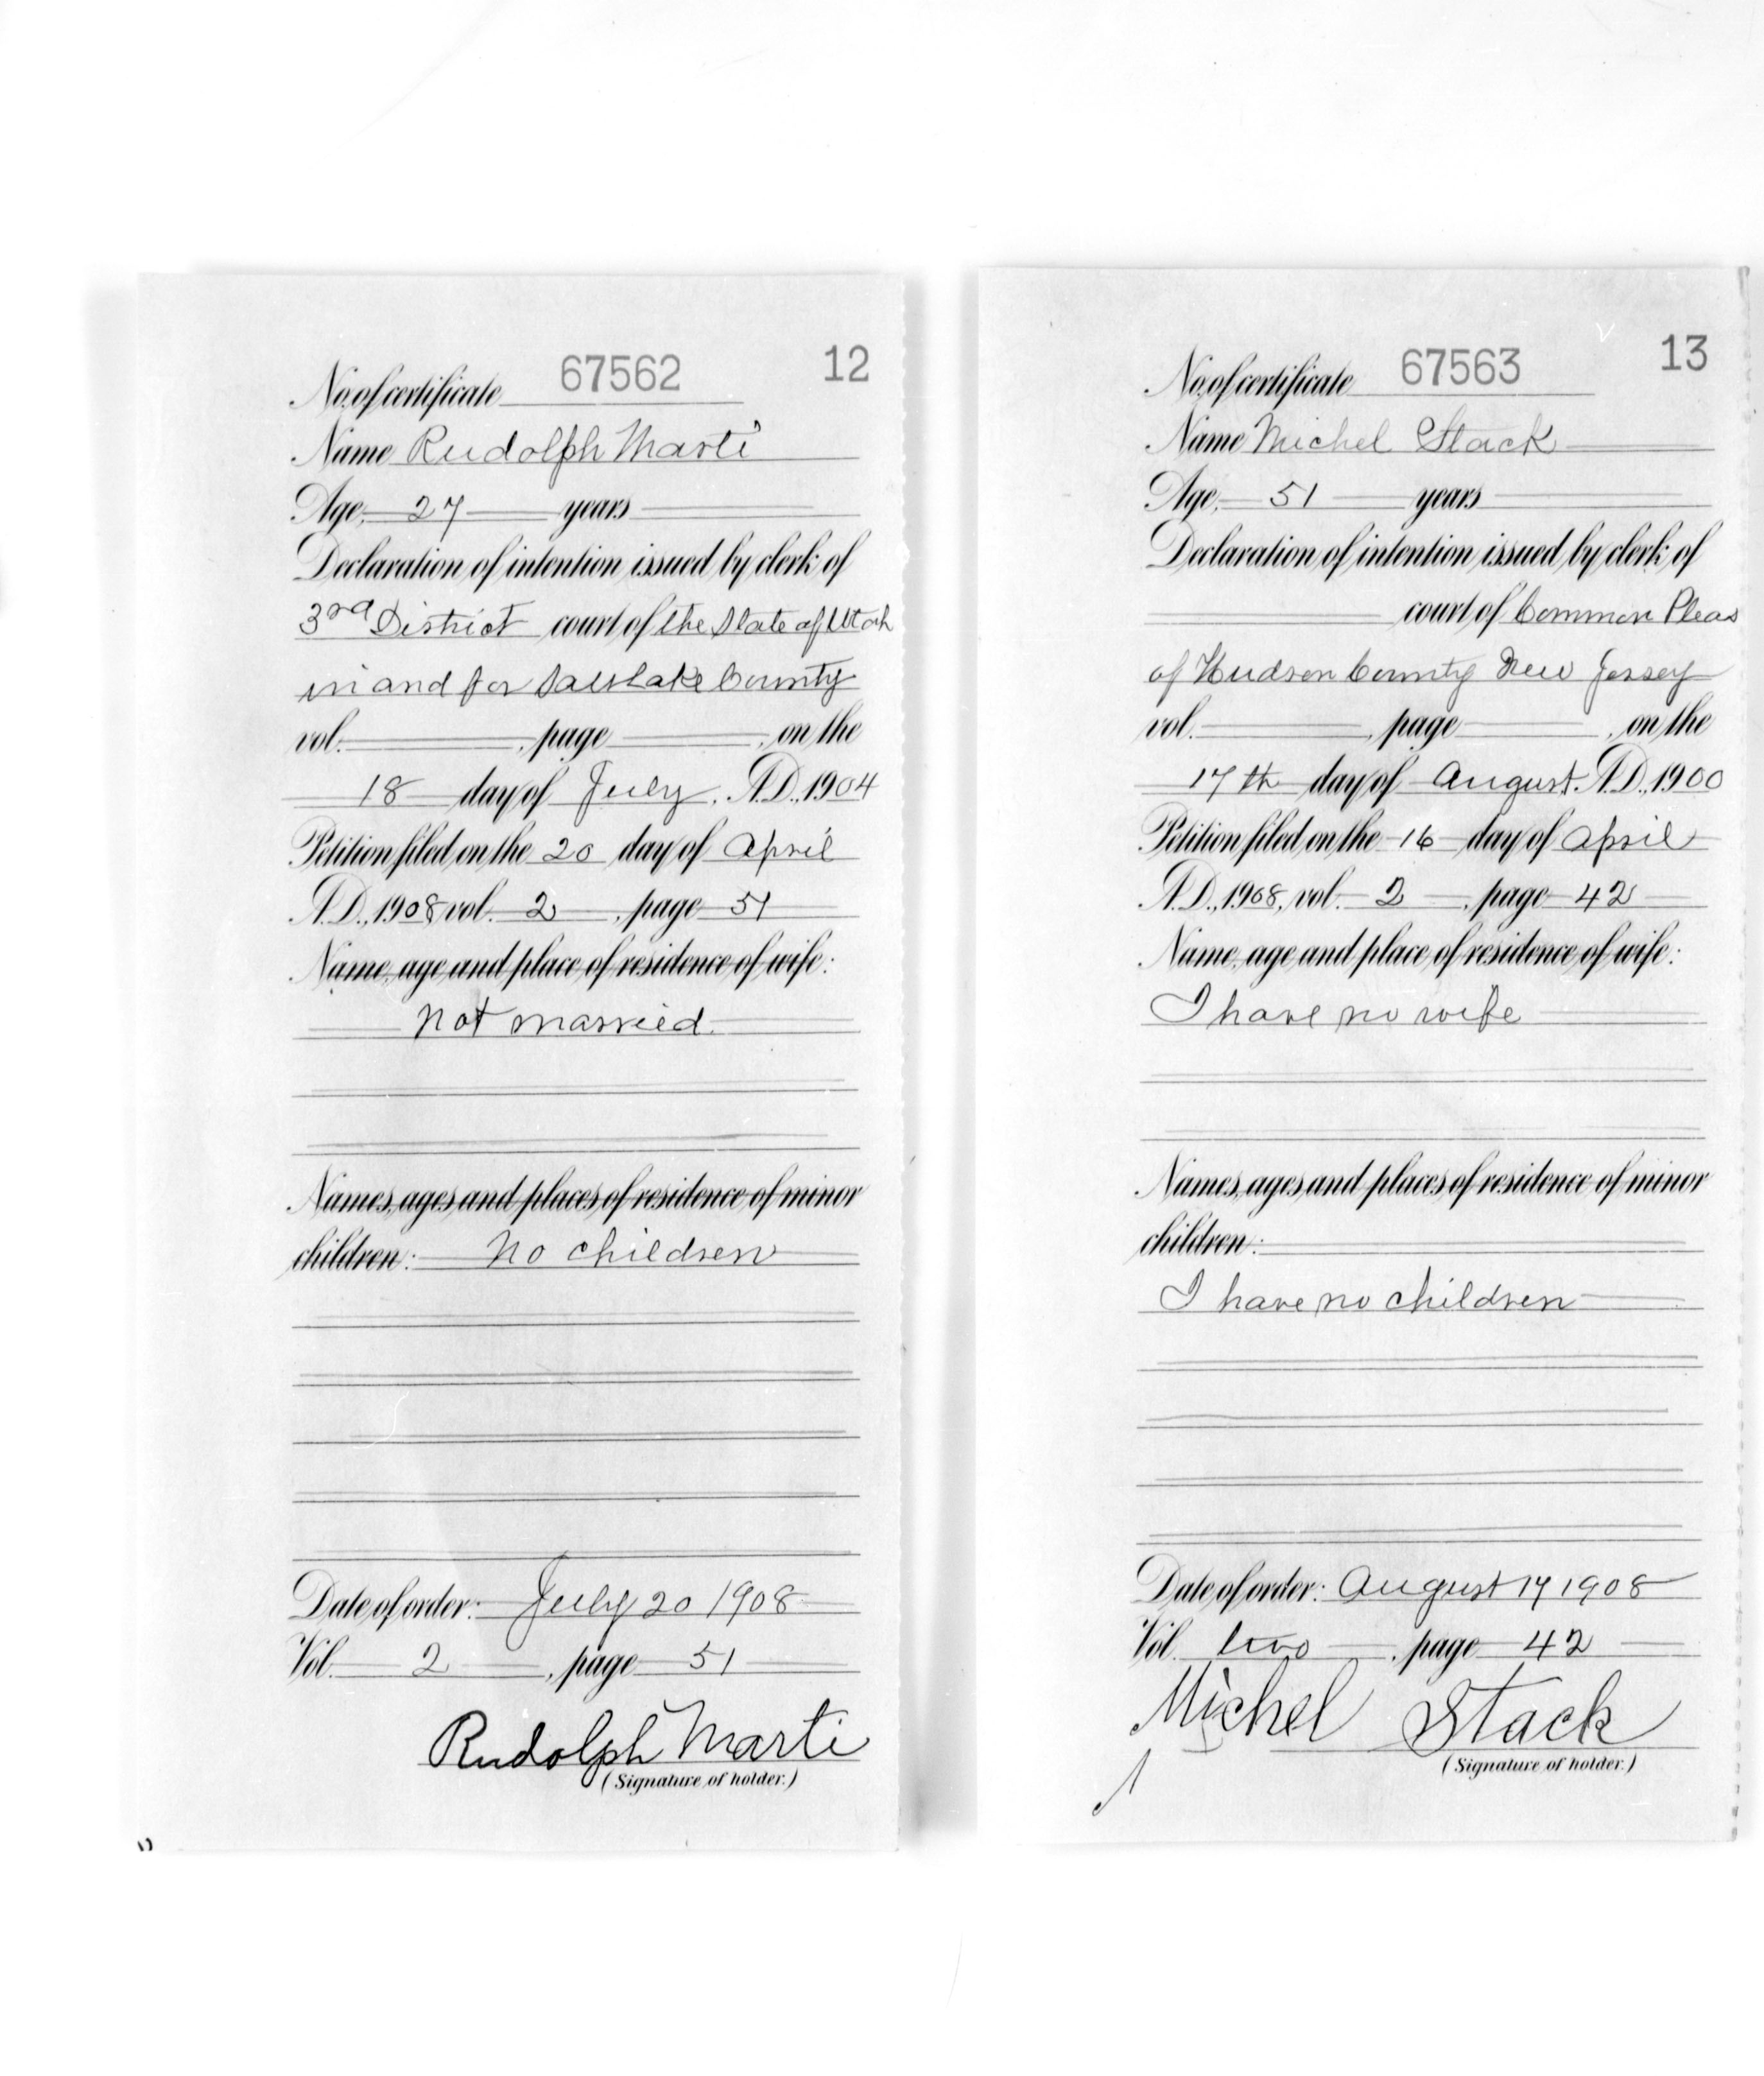 No. of certificate 67562 12
Name Rudolph Marti
Age, 27 years
Declaration of intention issued by clerk of
3rd District court of the State of Utah
in and for Salt Lake County
vol. , page , on the
18 day of July, A.D., 1904
Petition filed on the 20 day of April
A.D., 1908 vol. 2 , page 51
Name, age and place of residence of wife:
Not married.
Names, ages and places of residence of minor
children: No children
Date of order: July 20 1908
Vol. 2 , page 51
Rudolph Marti
(Signature of holder.)
No. of certificate 67563 13
Name Michel Stack
Age, 51 years
Declaration of intention issued by clerk of
court of Common Pleas
of Hudson County New Jersey
vol. , page , on the
17th day of August. A.D., 1900
Petition filed on the 16 day of April
A.D., 1908, vol. 2 , page 42
Name, age and place of residence of wife:
I have no wife
Names, ages and places of residence of minor
children:
I have no children
Date of order: August 17 1908
Vol. two , page 42
Michel Stack
(Signature of holder.)